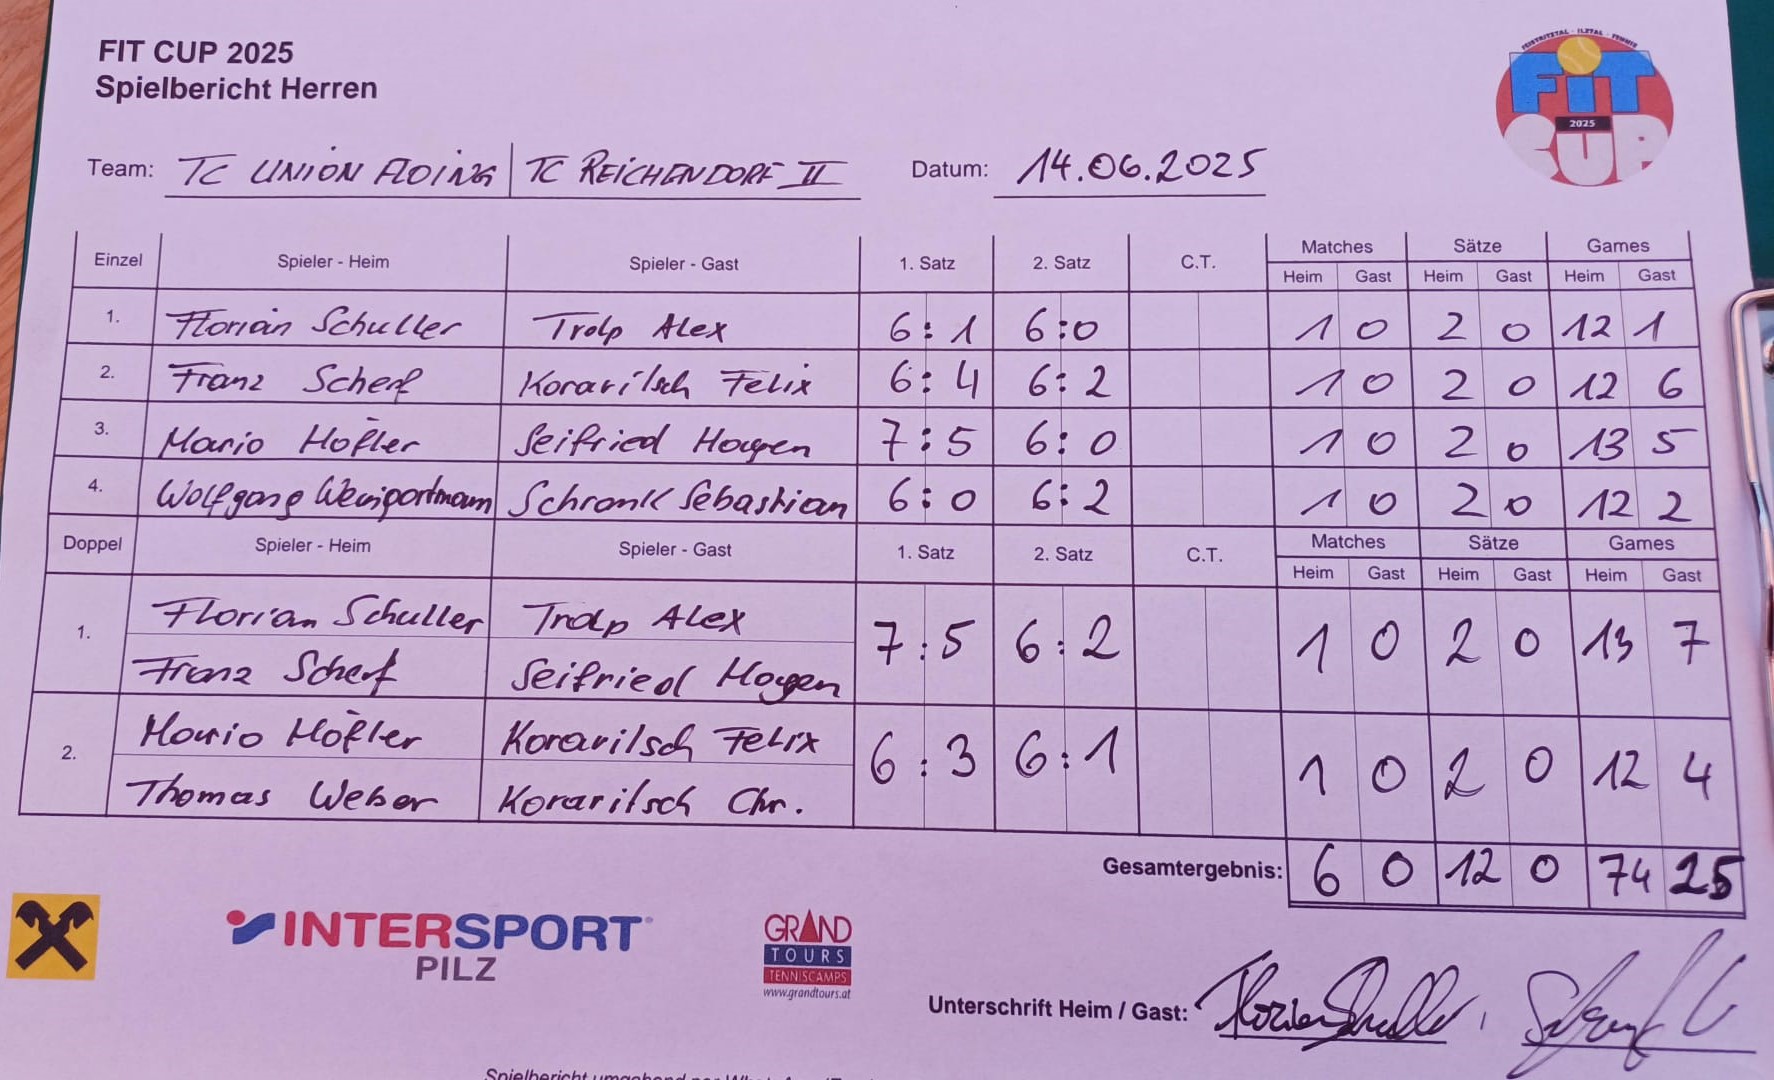 FIT CUP 2025
Spielbericht Herren
FEISTRITZTAL - ILZTAL - TENNIS
FiT
2025
CUP
Team: TC UNION FLOING | TC REICHENDORF II Datum: 14.06.2025
Einzel Spieler - Heim Spieler - Gast 1. Satz 2. Satz C.T. Matches Sätze Games
Heim Gast Heim Gast Heim Gast
1. Florian Schuller Trolp Alex 6:1 6:0 1 0 2 0 12 1
2. Franz Scherf Koraritsch Felix 6:4 6:2 1 0 2 0 12 6
3. Mario Höfler Seifried Hagen 7:5 6:0 1 0 2 0 13 5
4. Wolfgang Schrank Sebastian 6:0 6:2 1 0 2 0 12 2
Doppel Spieler - Heim Spieler - Gast 1. Satz 2. Satz C.T. Matches Sätze Games
Heim Gast Heim Gast Heim Gast
1. Florian Schuller Trolp Alex 7:5 6:2 1 0 2 0 13 7
Franz Scherf Seifried Hagen
2. Mario Höfler Koraritsch Felix 6:3 6:1 1 0 2 0 12 4
Thomas Weber Koraritsch Chr.
Gesamtergebnis: 6 0 12 0 74 25
INTERSPORT
PILZ
GRAND
TOURS
TENNISCAMPS
www.grandtours.at
Unterschrift Heim / Gast: Florian Schuller
Spielbericht umgehend per